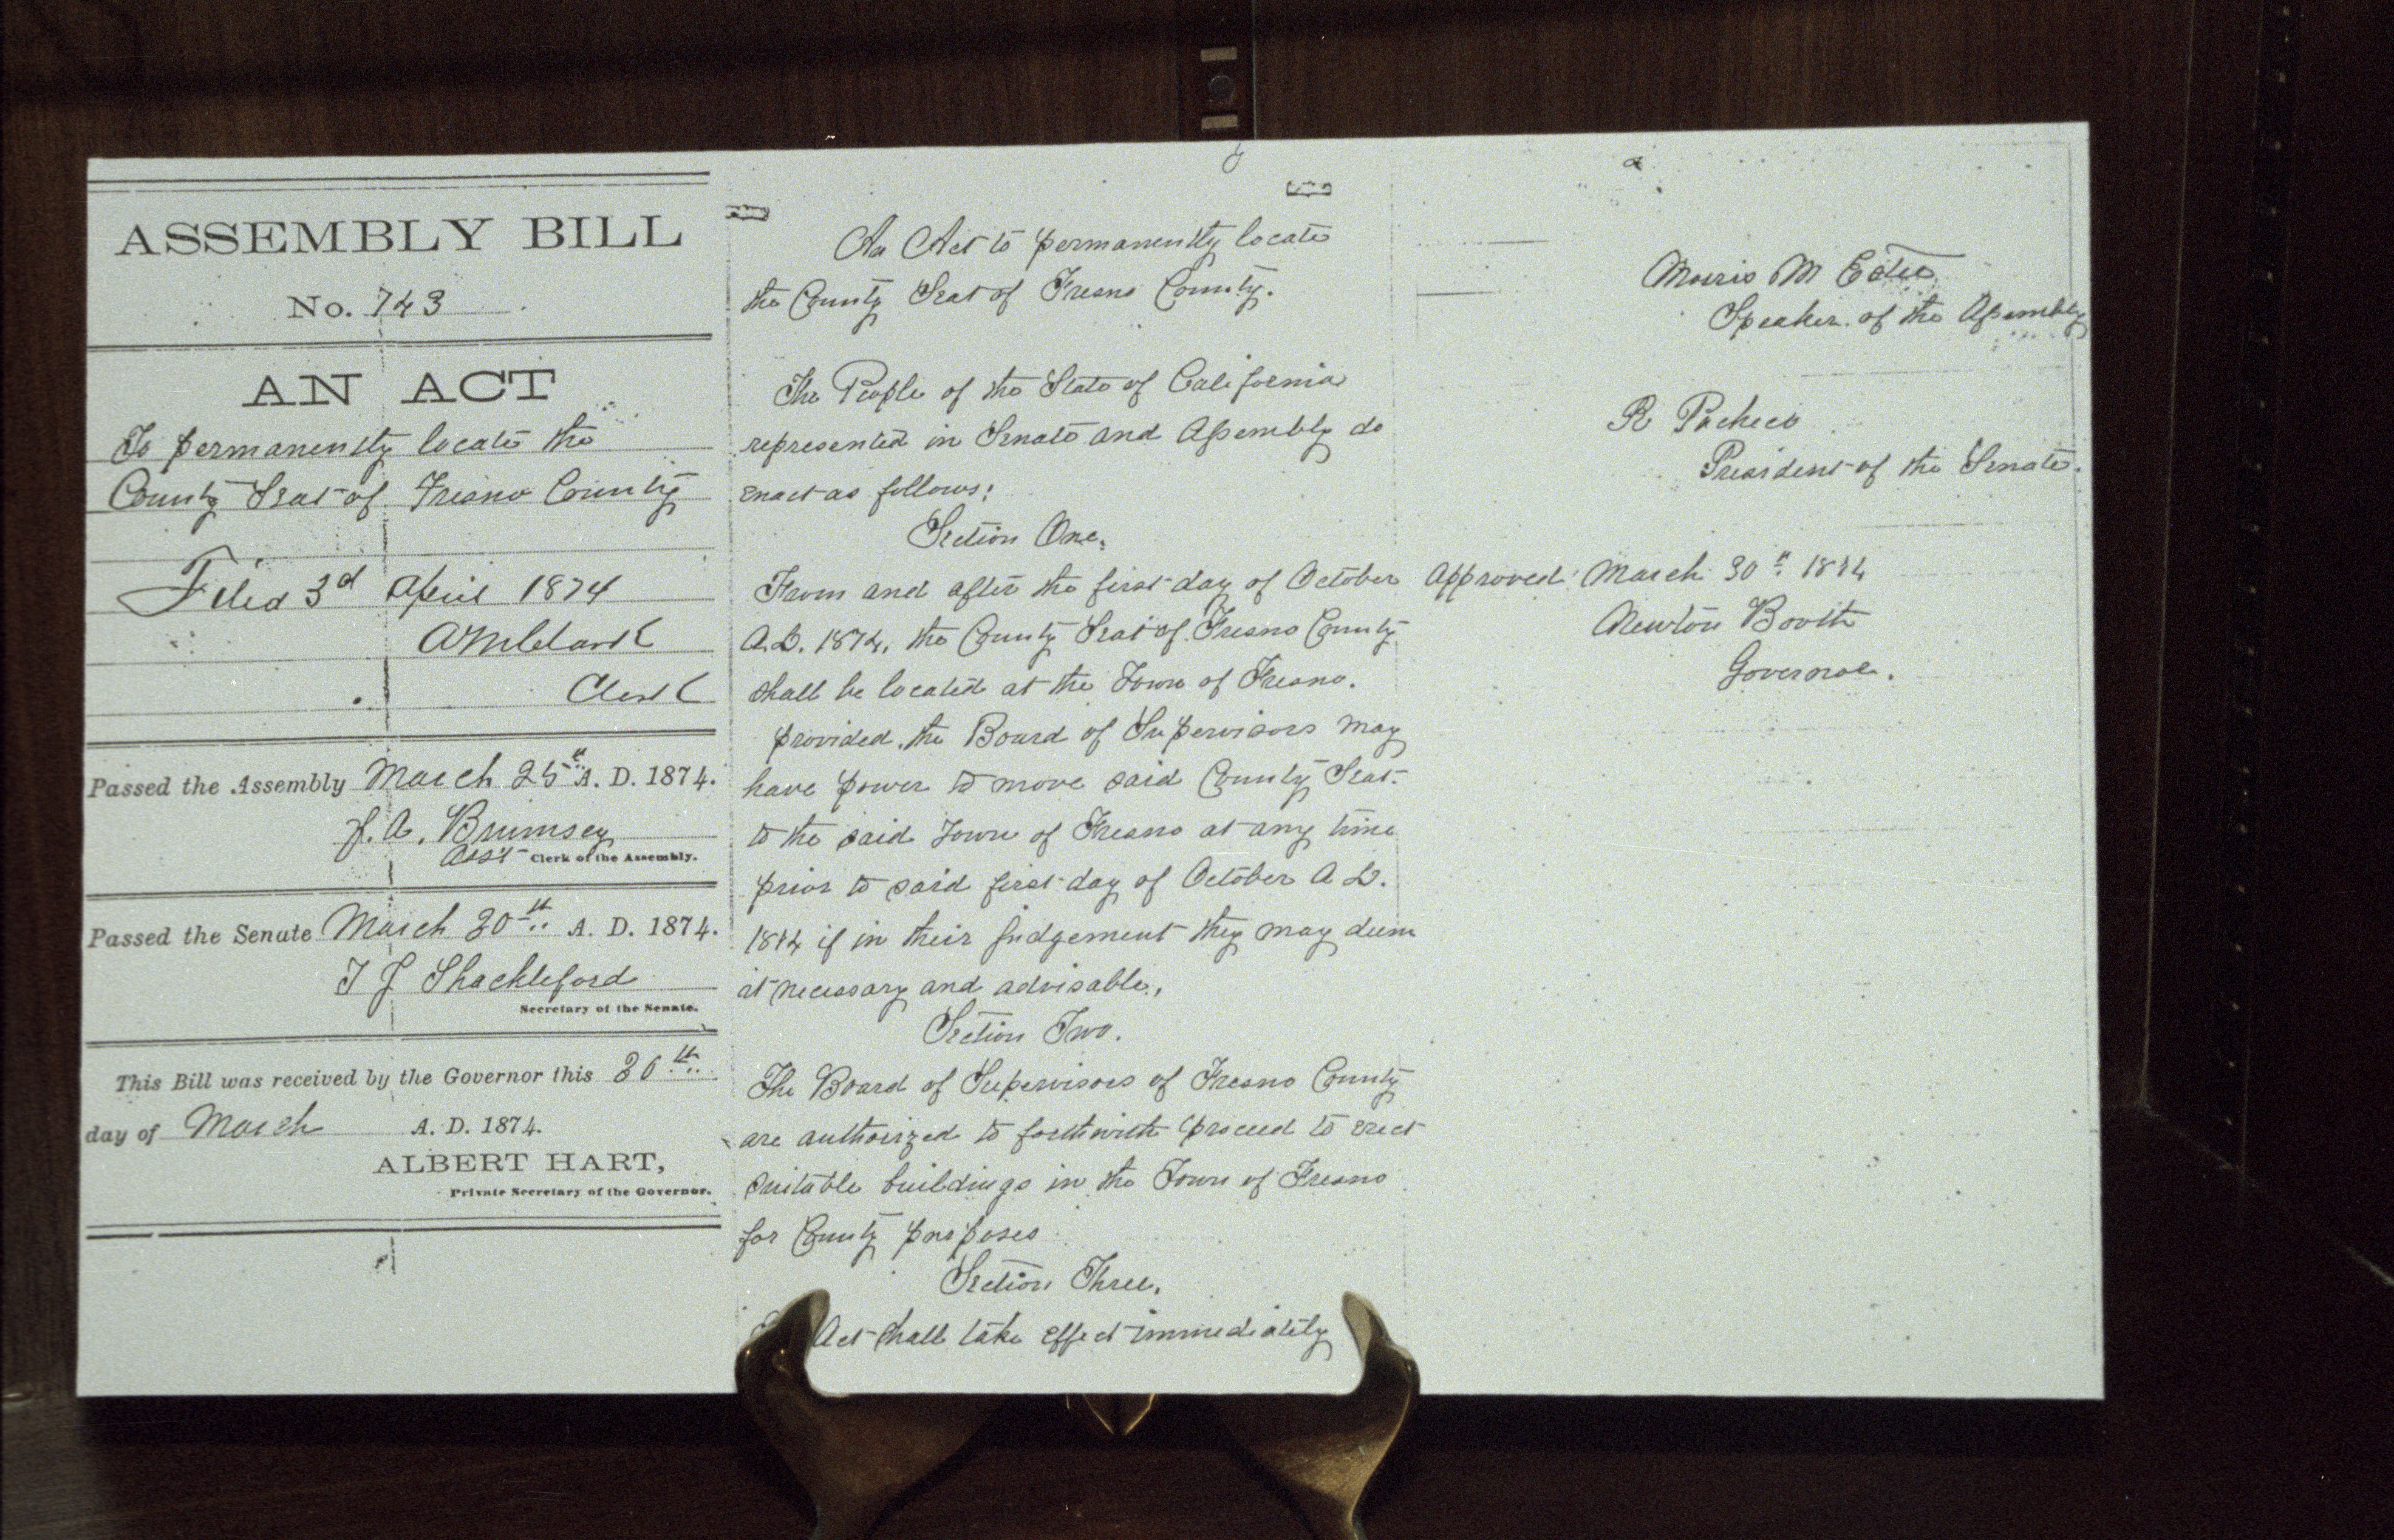 ASSEMBLY BILL
No. 743
AN ACT
To permanently locate the
County Seat of Fresno County
Filed 3d April 1874
A M Clark
Clerk
Passed the Assembly March 25th A. D. 1874.
J. A. Brumsey
Asst Clerk of the Assembly.
Passed the Senate March 30th A. D. 1874.
T J Shackleford
Secretary of the Senate.
This Bill was received by the Governor this 30th
day of March A. D. 1874.
ALBERT HART,
Private Secretary of the Governor.
An Act to permanently locate
the County Seat of Fresno County.
The People of the State of California
represented in Senate and Assembly do
enact as follows:
Section One.
From and after the first day of October
A.D. 1874, the County Seat of Fresno County
shall be located at the Town of Fresno.
provided, the Board of Supervisors may
have power to move said County Seat
to the said Town of Fresno at any time
prior to said first day of October A D.
1874 if in their judgement they may deem
it necessary and advisable.
Section Two.
The Board of Supervisors of Fresno County
are authorized to forthwith proceed to erect
suitable buildings in the Town of Fresno
for County purposes
Section Three.
Act shall take effect immediately
Morris M Estee
Speaker of the Assembly
R Pacheco
President of the Senate.
Approved March 30th 1874
Newton Booth
Governor.